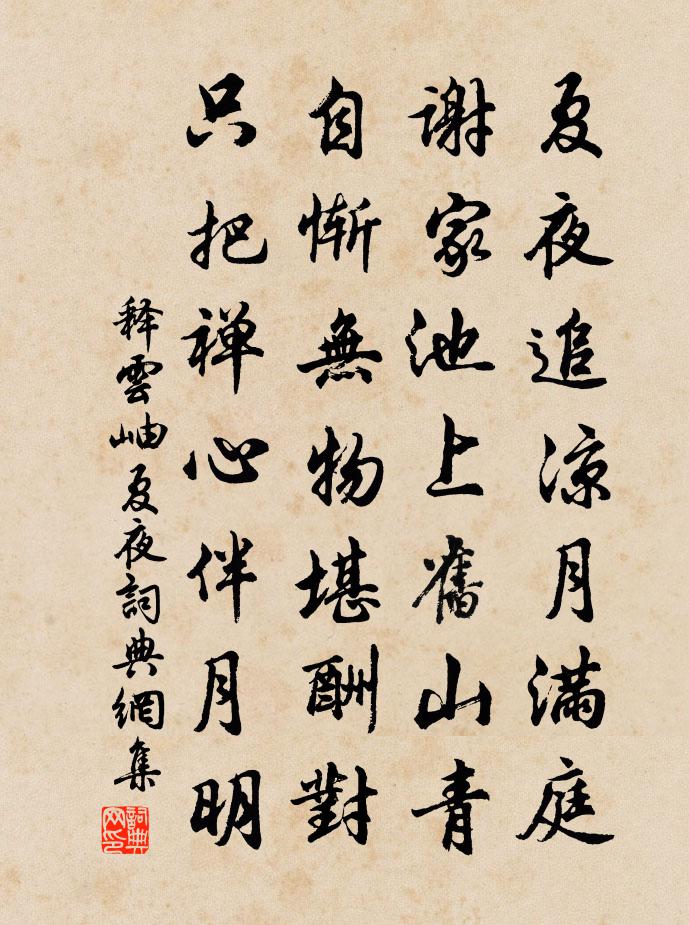 夏夜追涼月滿庭
謝家池上舊山青
自慚無物堪酬對
只把禅心伴月明
释雲岫夏夜詞典網集
詞典網印